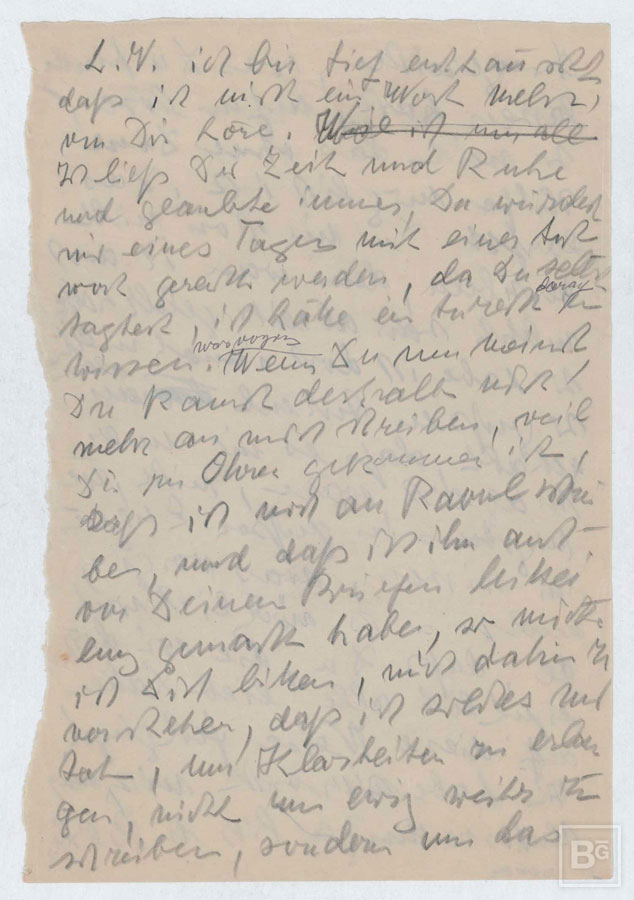 L.V. ich bin tief enttäuscht
daß ich nicht ein Wort mehr,
von Dir höre. Weil ich nun all
Ich ließ Dir Zeit und Ruhe
und glaubte immer, Du würdest
mir eines Tages mit einer Ant
wort gerecht werden, da Du selbst
sagtest, ich hätte ein Anrecht darauf zu
wissen. was vorging Wenn Du nun meinst
Du kannst deshalb nicht
mehr an mich schreiben, weil
Dir zu Ohren gekommen ist,
daß ich mich an Raoul schrie
ben, und daß ich ihm auch
von Deinen Briefen Mittei
lung gemacht habe, so möchte
ich Dich bitten, mich dahin zu
verstehen, daß ich solches nur
tat, um Klarheiten zu erlan
gen, nicht um ewig weiter zu
schreiben, sondern um das
BG